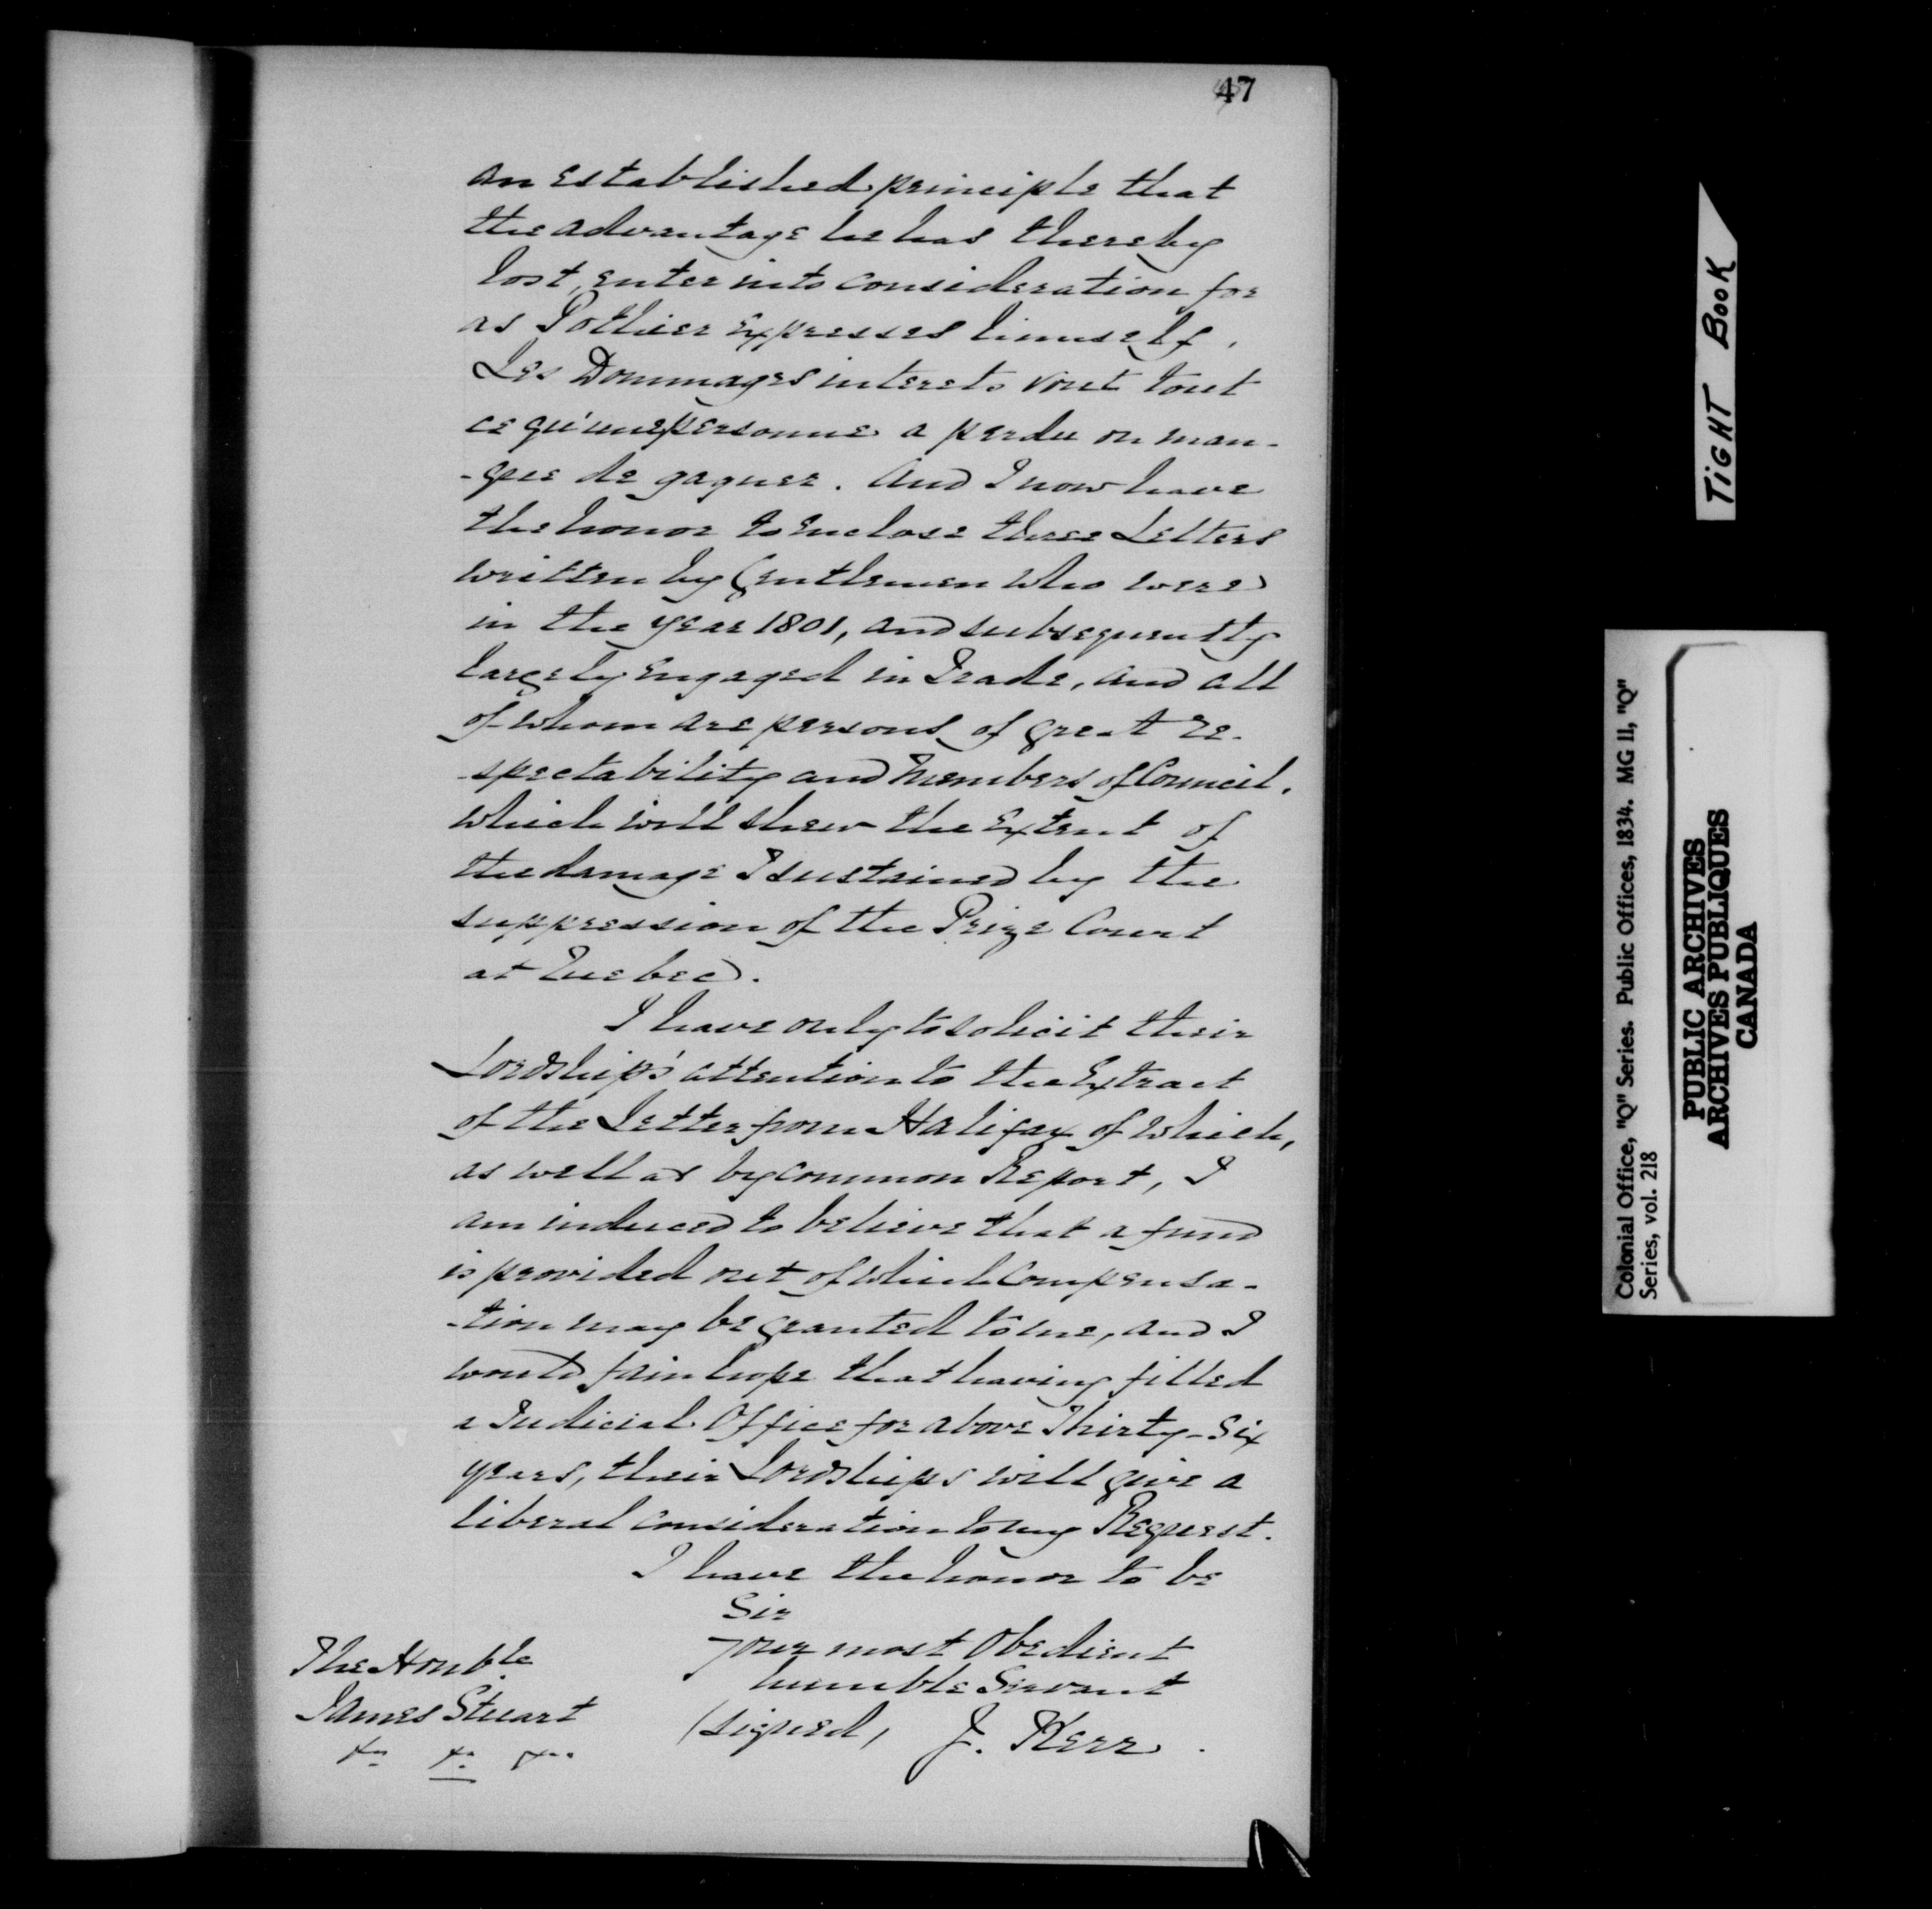 47
an established principle that
the advantage he has thereby
lost, enter into consideration for
as Pothier expresses himself,
Les Dommages interets vont tout
ce qu'une personne a perdu ou man-
-que de gagner. And I now have
the honor to enclose three Letters
written by Gentlemen who were
in the year 1801, and subsequently
largely engaged in Trade, and all
of whom are persons of great re-
-spectability and Members of Council,
which will shew the extent of
the damage I sustained by the
suppression of the Prize Court
at Quebec.
I have only to solicit their
Lordship's attention to the Extract
of the Letter from Halifax of which,
as well as by common Report, I
am induced to believe that a fund
is provided out of which Compensa-
-tion may be granted to me, and I
would fain hope that having filled
a Judicial Office for above Thirty-Six
years, their Lordships will give a
liberal consideration to my Request.
I have the honor to be
Sir
your most Obedient
humble Servant
(signed, J. Kerr.
The Honble
James Stuart
TIGHT BOOK
Colonial Office, "Q" Series. Public Offices, 1834. MG II, "Q"
Series, vol. 218
PUBLIC ARCHIVES
ARCHIVES PUBLIQUES
CANADA